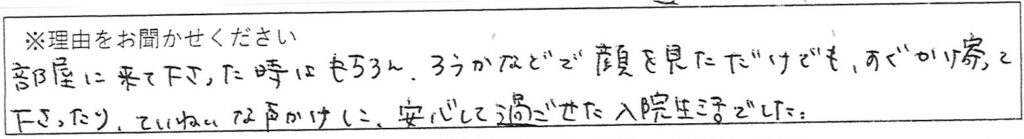 ※理由をお聞かせください
部屋に来て下さった時はもちろん、ろうかなどで顔を見ただけでも、すぐかけ寄って
下さったり、ていねいな声かけに、安心して過ごせた入院生活でした。